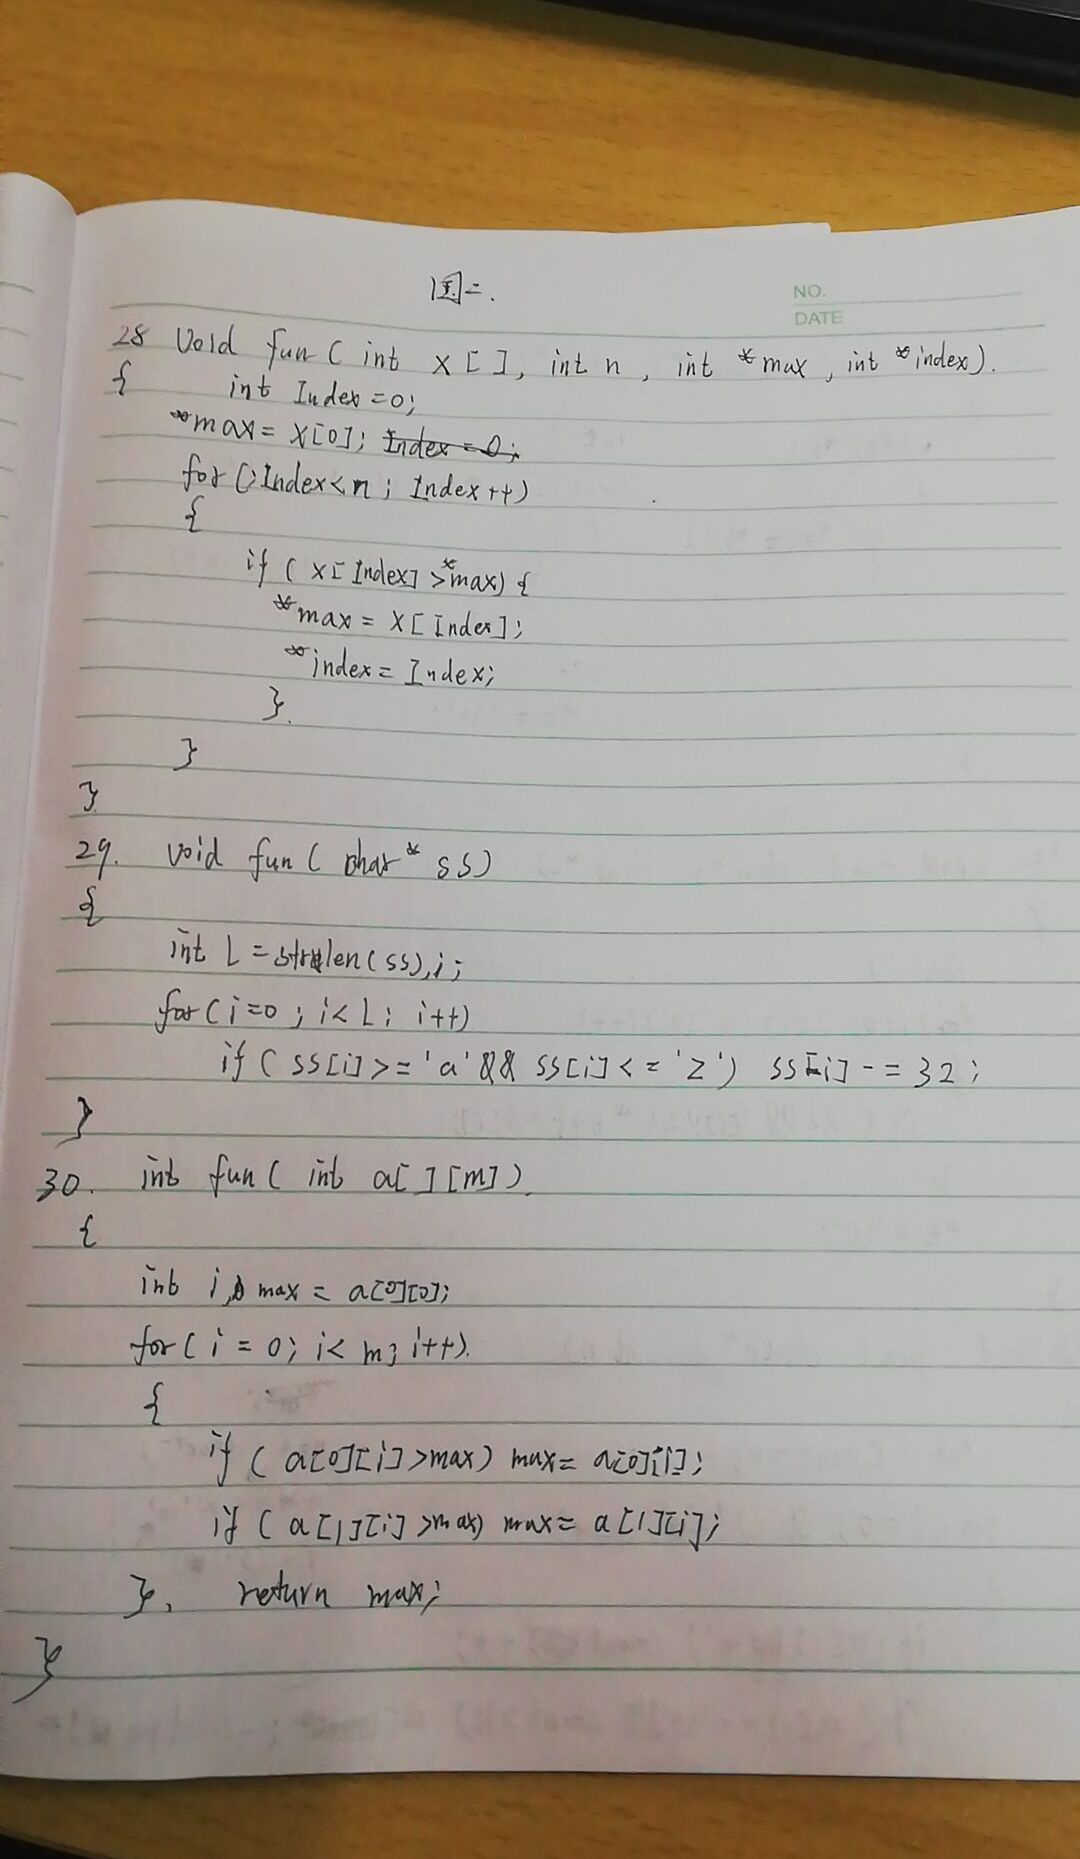 国二.
NO.
DATE
28 Void fun ( int X [ ], int n , int *max , int *index).
{ int Index = 0;
*max = X[0]; Index = 0;
for (; Index < n ; Index ++)
{
if ( X[ Index] > *max) {
*max = X[ Index];
*index = Index;
}.
}
}
29. void fun ( char* ss)
{
int L = strlen(ss), i;
for ( i=0 ; i< L ; i++)
if ( ss[i] >= 'a' && ss[i] <= 'z') ss[i] -= 32 ;
}
30. int fun ( int a[ ][m] ).
{
int i, max = a[0][0];
for ( i = 0; i< m; i++).
{
if ( a[0][i] >max) max= a[0][i];
if ( a[1][i] >max) max= a[1][i];
}. return max;
}